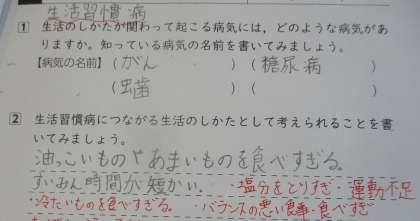 生活習慣病
1 生活のしかたが関わって起こる病気には，どのような病気があ
りますか。知っている病気の名前を書いてみましょう。
【病気の名前】（がん）（糖尿病）
（虫歯）（ ）
2 生活習慣病につながる生活のしかたとして考えられることを書
いてみましょう。
油っこいものやあまいものを食べすぎる。
すいみん時間が短かい。・塩分をとりすぎ・運動不足
・冷たいものを食べすぎる。・バランスの悪い食事・食べすぎ